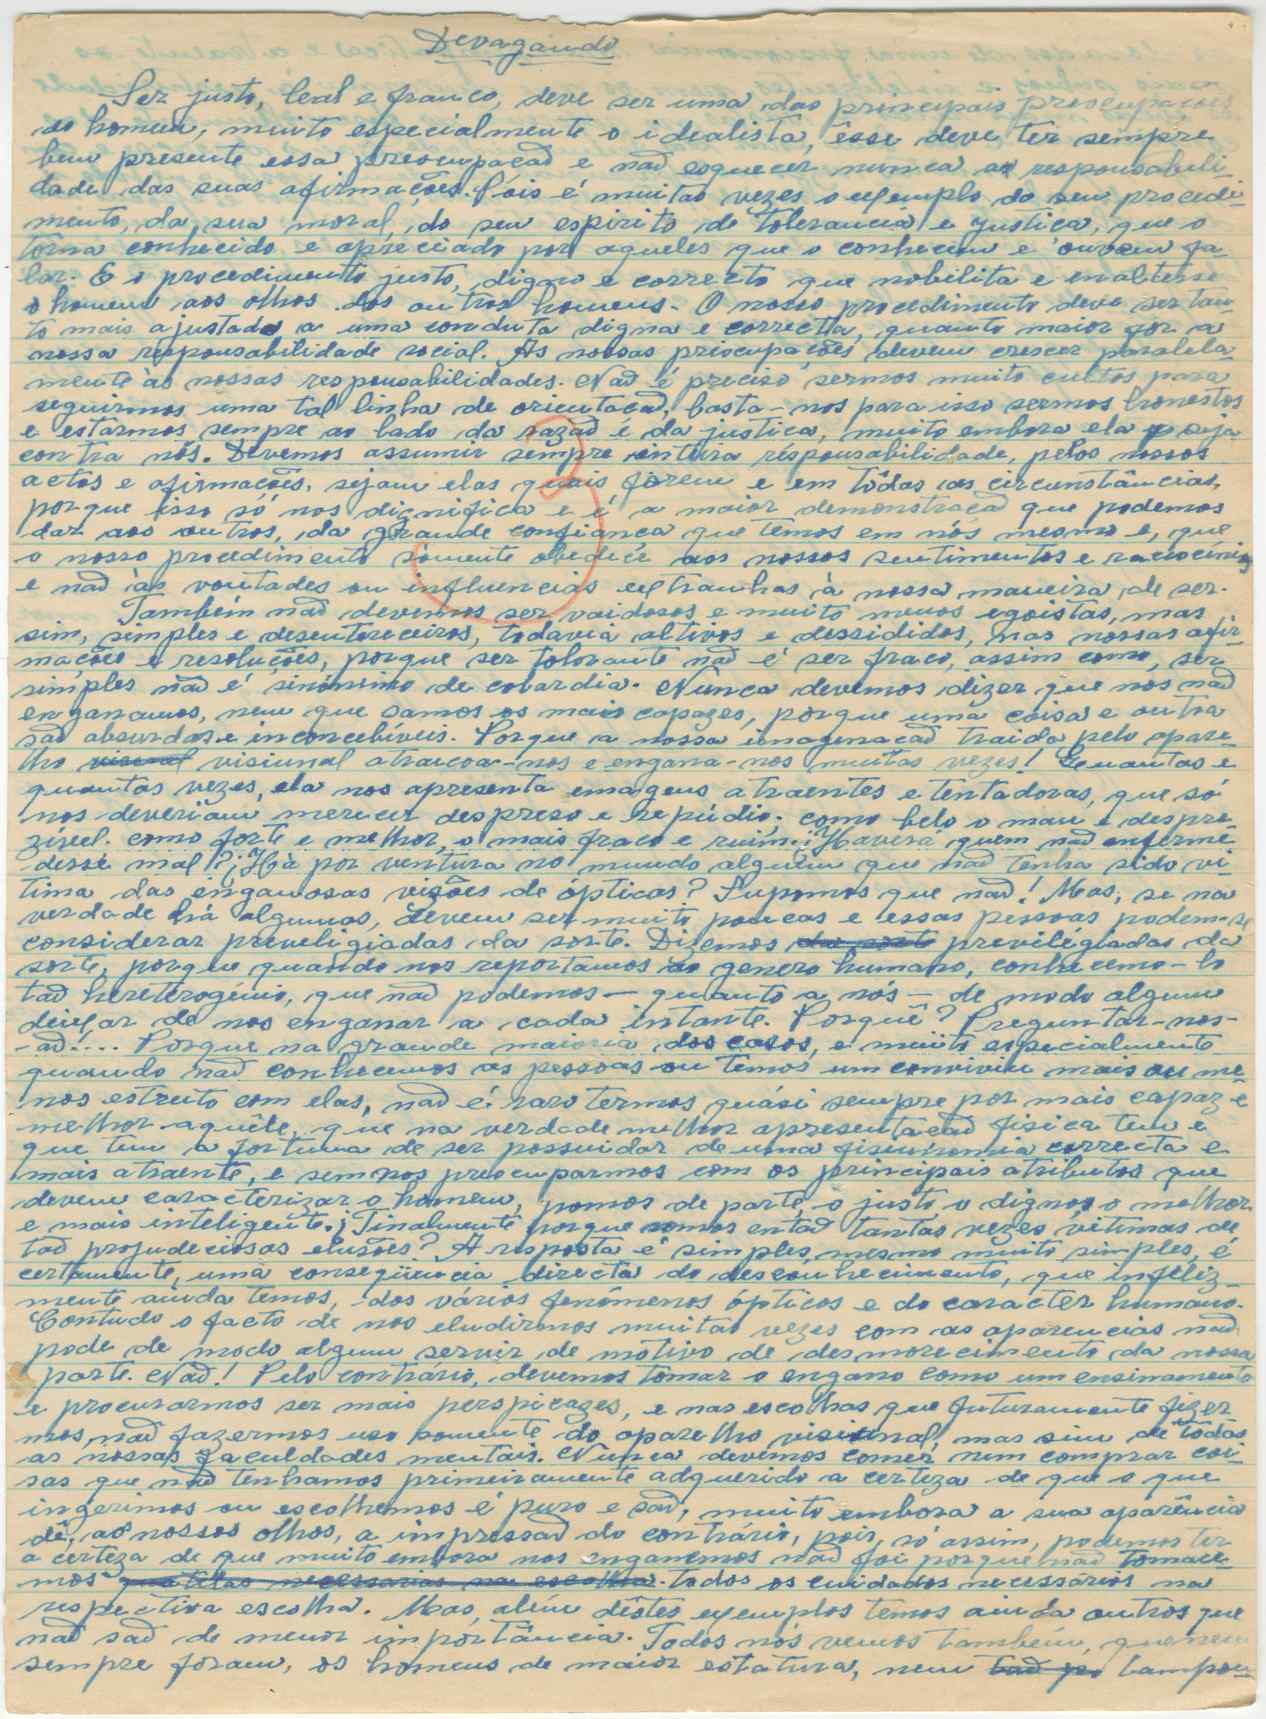 Devagando
Ser justo, leal e franco, deve ser uma das principais preocupações
do homem, muito especialmente o idealista, êsse deve ter sempre
bem presente essa preocupação e não esquecer nunca as responsabili-
dade das suas afirmações. Pois é muitas vezes o exemplo do seu procedi-
mento, da sua moral, do seu espirito de tolerancia e justiça, que o
torna conhecido e apreciado por aqueles que o conhecem e ouvem fa-
lar. E o procedimento justo, digno e correcto que nobilita e enaltesse
o homem aos olhos dos outros homens. O nosso procedimento deve ser tan-
to mais ajustado a uma conduta digna e correcta, quanto maior for a
nossa responsabilidade social. As nossas priocupações devem crescer paralela-
mente às nossas responsabilidades. Não é preciso sermos muito cultos para
seguirmos uma tal linha de orientação, basta-nos para isso sermos honestos
e estarmos sempre ao lado da razão e da justiça, muito embora ela seja
contra nós. Devemos assumir sempre entura résponsabilidade, pelos nossos
actos e afirmações, sejam elas quais forem e em tôdas as circunstâncias,
porque isso só nos dignifica e é a maior demonstração que podemos
dar aos outros, da grande confiança que temos em nós mesmo e, que
o nosso procedimento sòmente obedéce aos nossos sentimentos e raciocínios
e não às vontades ou influencias extranhas à nossa maneira de ser.
Também não devemos ser vaidosos e muito menos egoistas, mas
sim, simples e desentereceiros, todavia altivos e dessididos, nas nossas afir-
mações e resoluções, porque ser tolorante não é ser fraco, assim como, ser
simples não é sinónimo de covardia. Nunca devemos dizer que nos não
enganamos, nem que somos os mais capazes, porque uma coisa e outra
são absurdas e inconcebiveis. Porque a nossa imagenação traida pelo apare-
lho visional visiunal atraiçoa-nos e engana-nos muitas vezes! Quantas e
quantas vezes, ela nos apresenta emagens atraentes e tentadoras, que só
nos deveriam merecer despreso e repúdio; como belo o mau e despre-
zível. como forte e melhor, o mais fraco e ruim; ¡Haverá quem não enferme
desse mal? ¡Há por ventura no mundo alguém que não tenha sido vi-
tima das enganosas visões de ópticas? Supomos que não! Mas, se na
verdade há algumas, devem ser muito poucas e essas pessoas podem-se
considerar preveligiadas da sorte. Dizemos da sorte previlégiadas da
sorte, porque quando nos reportamos ao genero humano, conhecemo-lo
tão hereterogénio, que não podemos — quanto a nós — de modo algum
deixar de nos enganar a cada intante. Porquê? Preguntar-nos-
-ão.... Porque na grande maioria dos casos, e muito especialmente
quando não conhecemos as pessoas ou temos um conviviu mais ou me-
nos estreito com elas, não é raro termos quási sempre por mais capaz e
melhor aquêle, que na verdade melhor apresentação fisica tem e
que tem a fortuna de ser possuidar de uma fisiunomia correcta e
mais atraente, e sem nos preocuparmos com os principais atributos que
devem caracterizar o homem, pomos de parte, o justo o digno o melhor
e mais inteligente. ¡Finalmente porque somos então tantas vezes vitimas de
tão projudeciosas elusões? A resposta é simples, mesmo muito simples, é
certamente, uma conseqüencia directa do desconhecimento, que infeliz-
mente ainda temos, dos vários fenômenos ópticos e do caracter humano.
Contudo o facto de nos eludirmos muitas vezes com as aparencias não
pode de modo algum servir de motivo de desmorecimento da nossa
parte. Não! Pelo contrário, devemos tomar o engano como um ensinamento
e procurarmos ser mais perspicazes, e nas escolhas que futuramente fizer
mos, não fazermos uso somente do aparelho visiunal, mas sim de tôdas
as nossas faculdades mentais. Nunca devemos comer nem comprar coi-
sas que não tenhamos primeiramente adquerido a certeza de que o que
ingerimos ou escolhemos é puro e são, muito embora a sua aparência
dê, aos nossos olhos, a impressão do contrário, pois, só assim, podemos ter
a certeza de que muito embora nos enganemos não foi porque não tomace-
mos todos os cuidados necessários na
respectiva escolha. Mas, além dêstes exemplos temos ainda outros que
não são de menor importância. Todos nós vemos também, que nem
sempre foram, os homens de maior estatura, nem tampou-